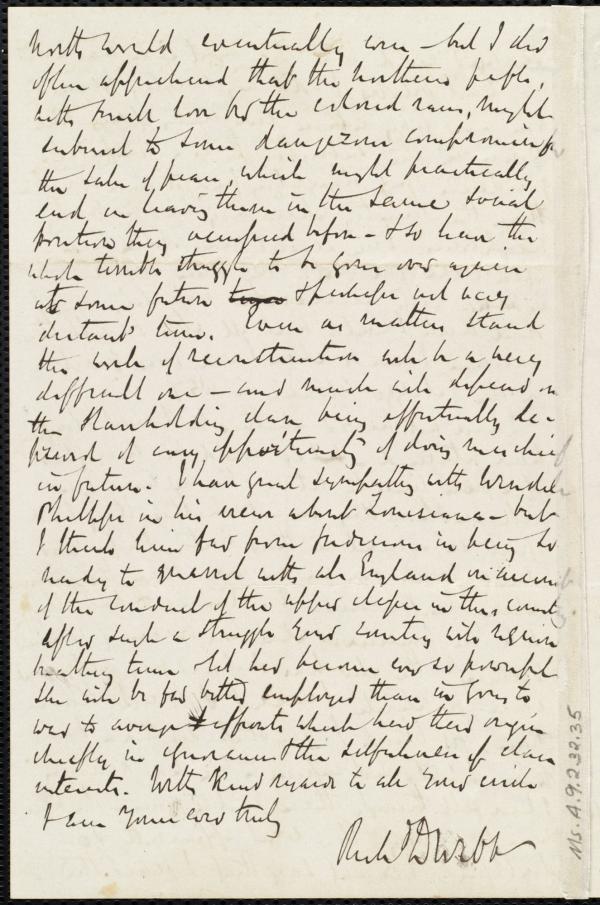 North would eventually win - but I did
often apprehend that the Northern people,
with small love for the colored race, might
submit to some dangerous compromise for
the sake of peace, which might practically
end in leaving them in the same social
position they occupied before - & to have the
whole terrible struggle to be gone over again
at some future & perhaps not very
distant time. Even as matters stand
the work of reconstruction will be a very
difficult one - and much will depend on
the Slaveholding class being effectually de-
prived of every opportunity of doing mischief
in future. I have great sympathy with Wendell
Phillips in his views about Louisiana - but
I think him far from judicious in being so
ready to quarrel with all England on account
of the conduct of the upper classes in this country
After such a struggle your country will require
breathing time & let her become ever so powerful
she will be far better employed than in going to
war to avenge affronts which have their origin
chiefly in ignorance & the selfishness of class
interests. With kind regards to all your circle
I am Yours ever truly
Richd D Webb
Ms. A.9.2.32.35